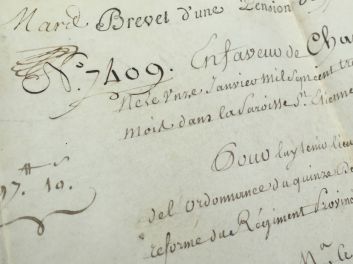 Mard Brevet d'une Pension de
N.º 7409. En faveur de Cha
Né le Onze Janvier Mil Sept cent tr
mois dans la Paroisse St. Etienne
Pour luy tenir lieu
17.tt 10.s
del'ordonnance du quinze De
reformé du Régiment Provin
M.